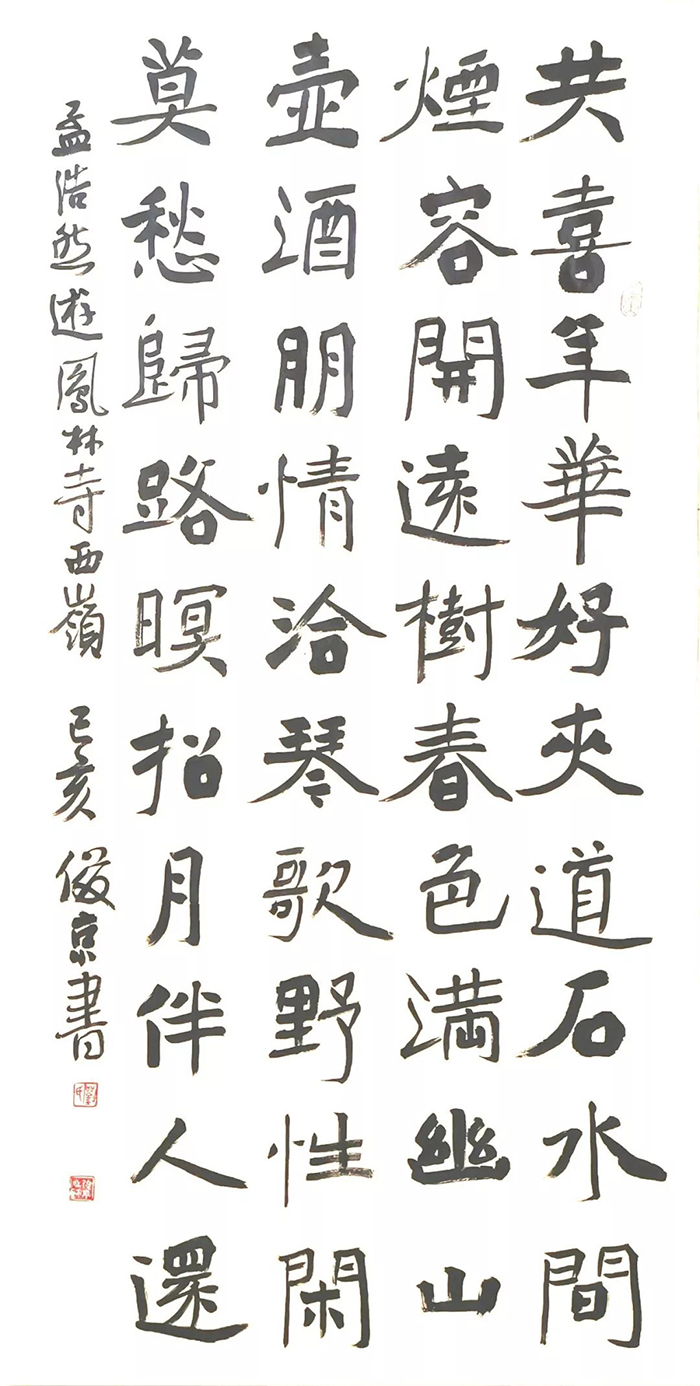 共喜年華好夾道石水間
煙容開遠樹春色満幽山
壺酒朋情洽琴歌野性閑
莫愁歸路暝招月伴人還
孟浩然遊鳳林寺西嶺
己亥 俊京書